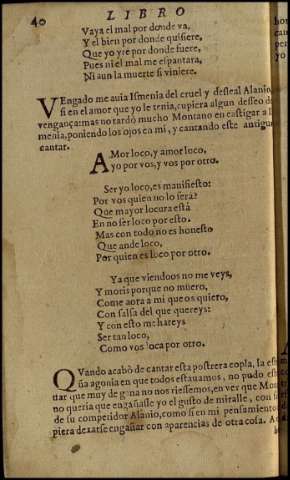 40 LIBRO
Vaya el mal por donde va,
Y el bien por donde quisiere,
Que yo yre por donde fuere,
Pues ni el mal me espantara,
Ni aun la muerte si viniere.
VEngado me auia Ismenia del cruel y desleal Alanio,
si en el amor que yo le tenia, cupiera algun desseo de
vengança: mas no tardó mucho Montano en castigar a
menia, poniendo los ojos en mi, y cantando este antiguo
cantar.
AMor loco, y amor loco,
yo por vos, y vos por otro.
Ser yo loco, es manifiesto:
Por vos quien no lo será?
Que mayor locura está
En no ser loco por esto.
Mas con todo no es honesto
Que ande loco,
Por quien es loco por otro.
Ya que viendoos no me veys,
Y moris porque no muero,
Come aora a mi que os quiero,
Con salsa del que quereys:
Y con esto me hareys
Ser tan loco,
Como vos loca por otro.
QVando acabò de cantar esta postrera copla, la
ña agonia en que todos estauamos, no pudo
tar que muy de gana no nos riessemos, en ver que
no queria que engañasse yo el gusto de miralle, con
de su competidor Alanio, como si en mi pensamiento
piera dexarse engañar con aparencias de otra cosa.